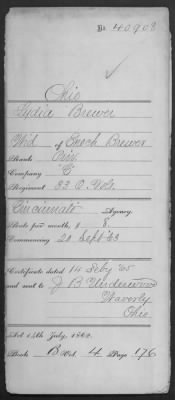 No. 40908
Ohio
Lydia Brewer
Wid of Enoch Brewer
Rank Priv.
Company "G"
Regiment 33 O. Vols.
Cincinnati Agency.
Rate per month, $ 8.
Commencing 20 Sept '63
Certificate dated 14 Feby '65
and sent to J B Underwood
Waverly
Ohio.
Act 14th July, 1862.
Book B Vol. 4 Page 176